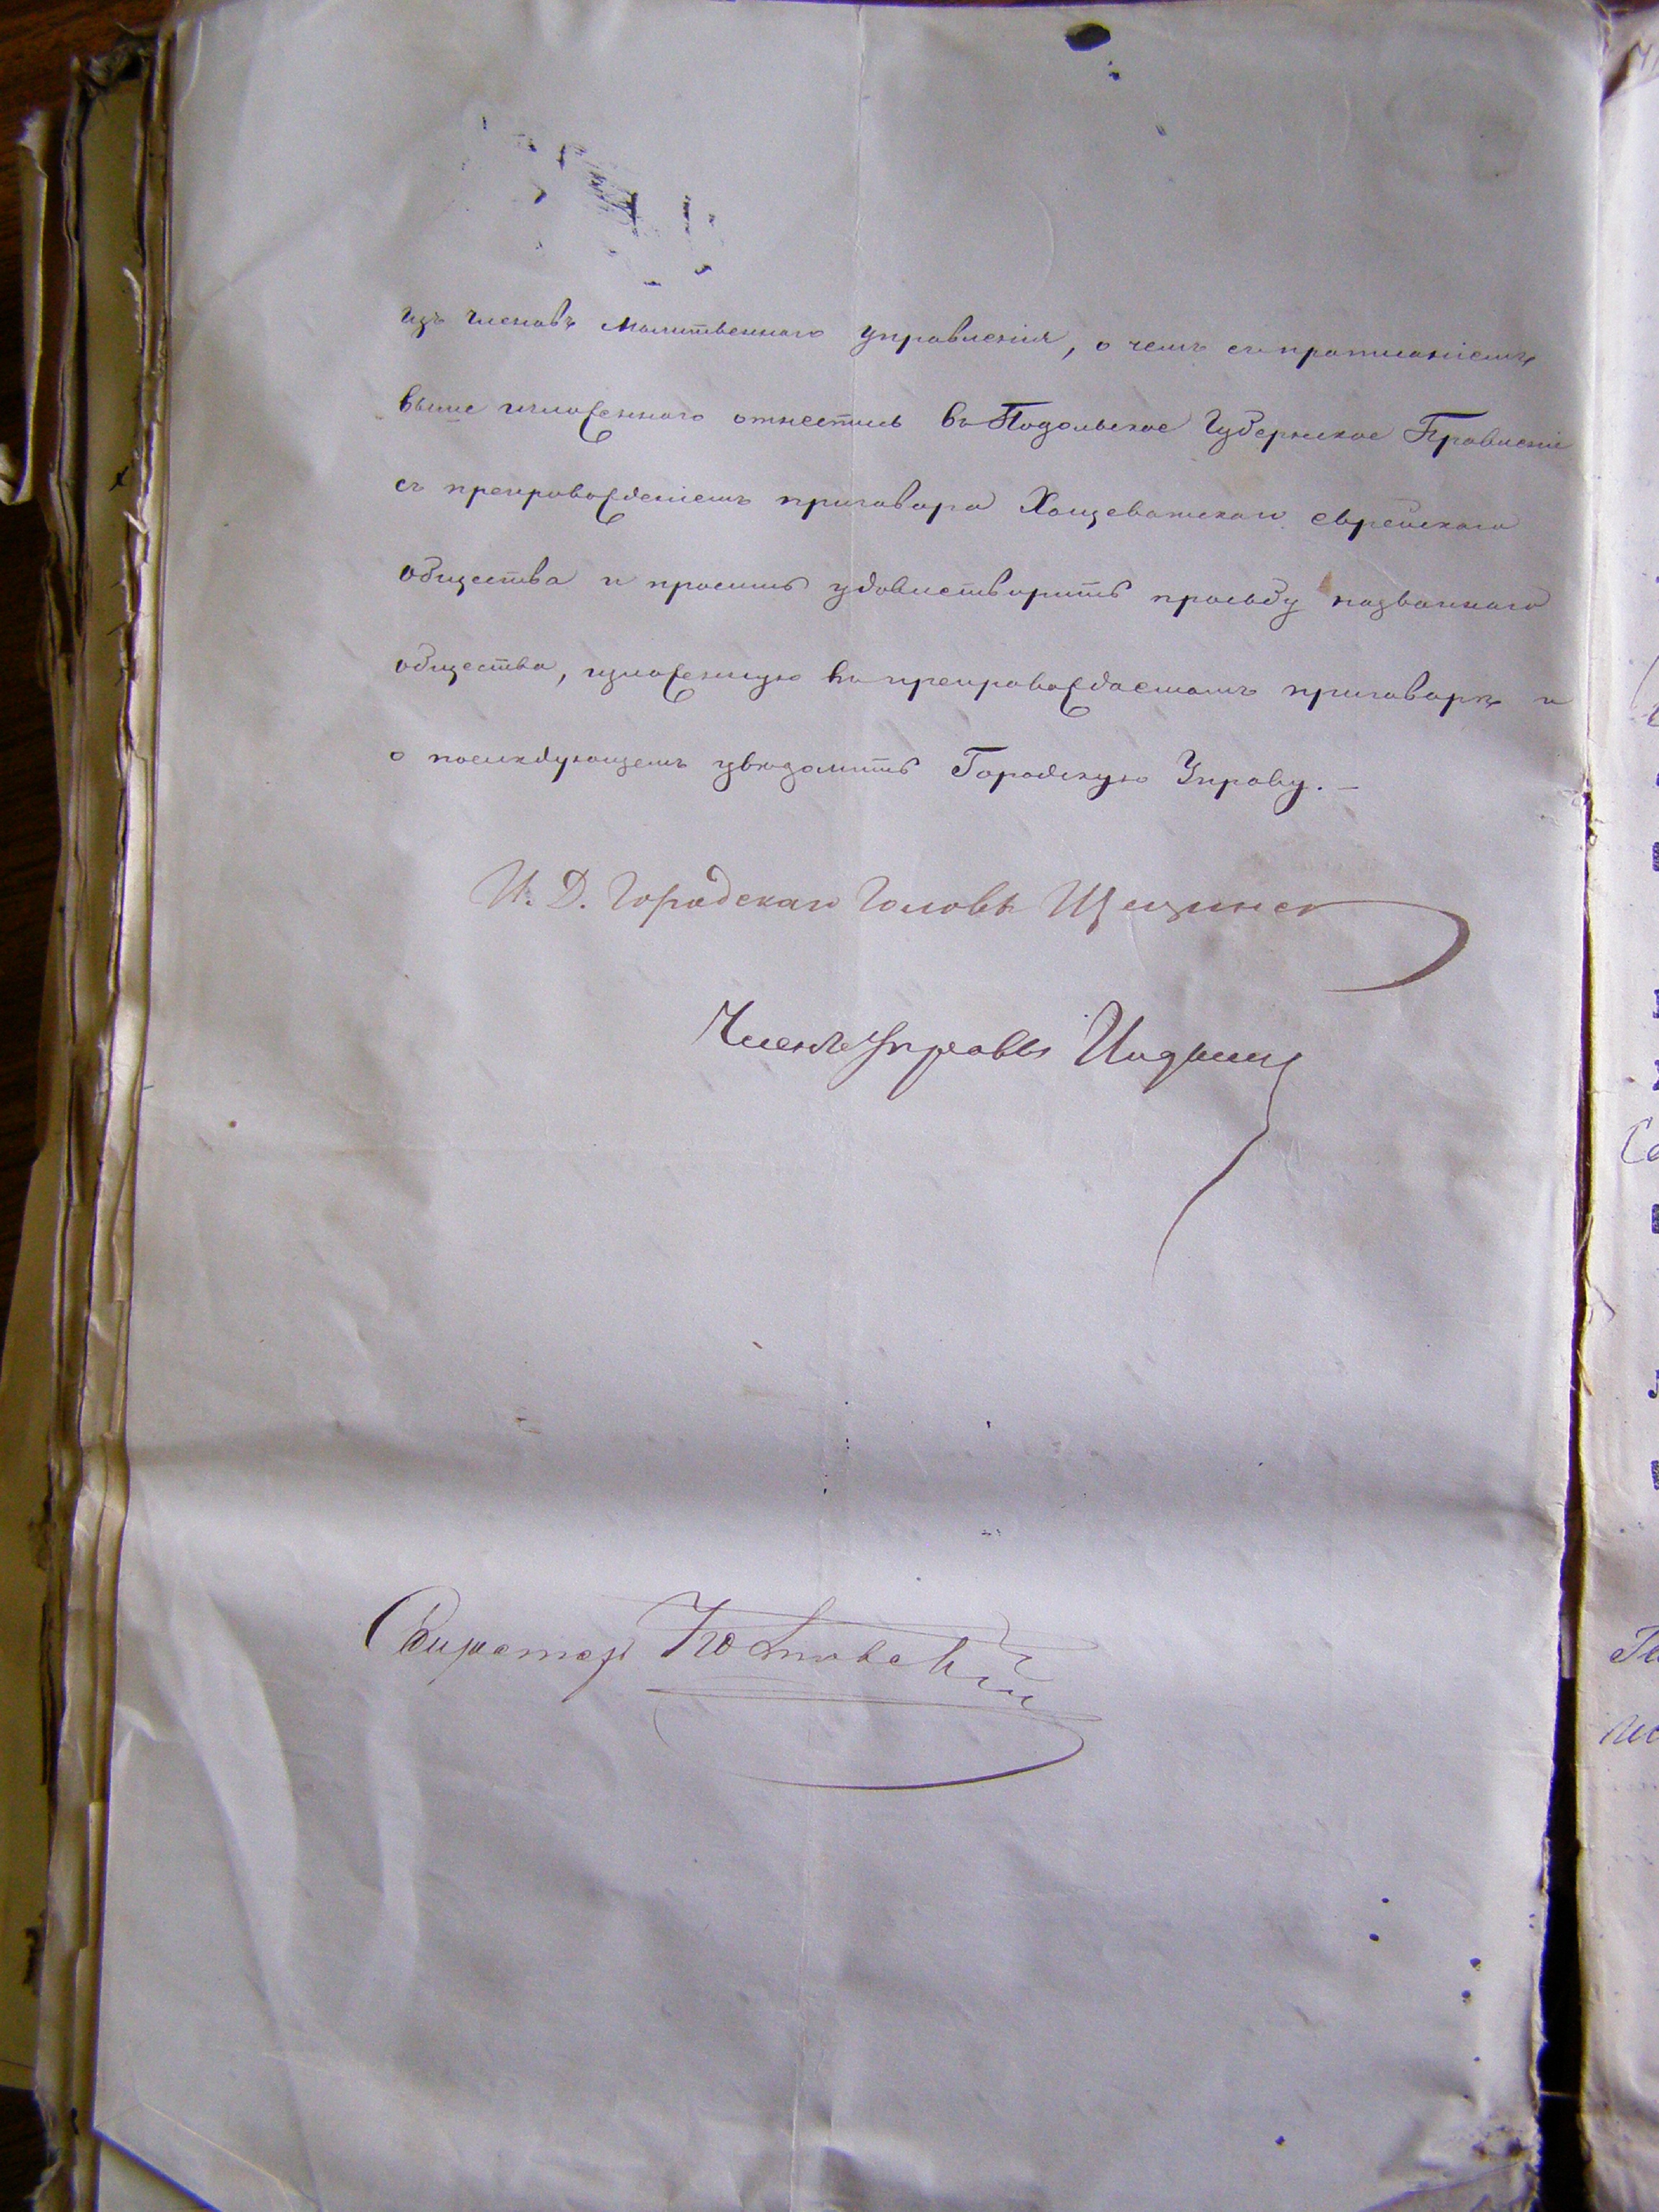 изъ членовъ молитвеннаго управленія, о чемъ съ прописаніемъ
выше изложеннаго отнестись въ Подольское Губернское Правленіе
съ препровожденіемъ приговора Хощеватскаго еврейскаго
общества и просить удовлетворить просьбу названнаго
общества, изложенную въ препровождаемомъ приговорѣ и
о послѣдующемъ увѣдомить Городскую Управу. –
И. Д. Городскаго Головы
Членъ Управы
Секретарь